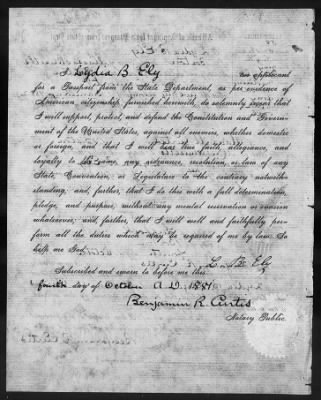 I, Lydia B. Ely an applicant
for a Passport from the State Department, as per evidence of
American citizenship, furnished herewith, do solemnly swear that
I will support, protect, and defend the Constitution and Govern-
ment of the United States, against all enemies, whether domestic
or foreign, and that I will bear true faith, allegiance, and
loyalty to the same, any ordinance, resolution, or law of any
State, Convention, or Legislature to the contrary notwith-
standing; and, further, that I do this with a full determination,
pledge, and purpose, without any mental reservation or evasion
whatsoever; and, further, that I will well and faithfully per-
form all the duties which may be required of me by law. So
help me God.
L. B. Ely
Subscribed and sworn to before me this
fourth day of October A.D. 1881
Benjamin R. Curtis
Notary Public.